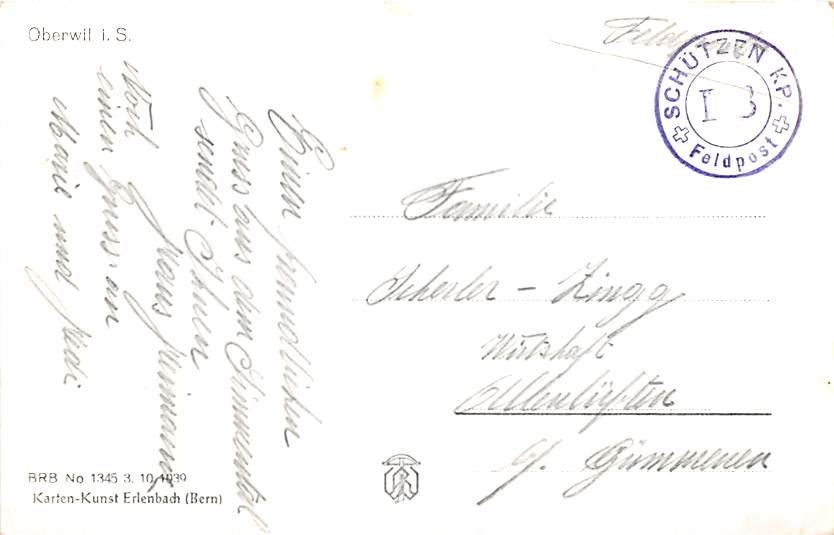 Oberwil i. S.
Feldpost
SCHÜTZEN KP.
I 3
Feldpost
Einen freundlichen
Gruss aus dem Simmental
sendet Ihnen
Hans
Noch einen Gruss an
Marie und Hedi
Familie
Scherler - Zingg
Wirtschaft
Allenlüften
b/. Gümmenen
BRB No 1345 3. 10. 1939
Karten-Kunst Erlenbach (Bern)